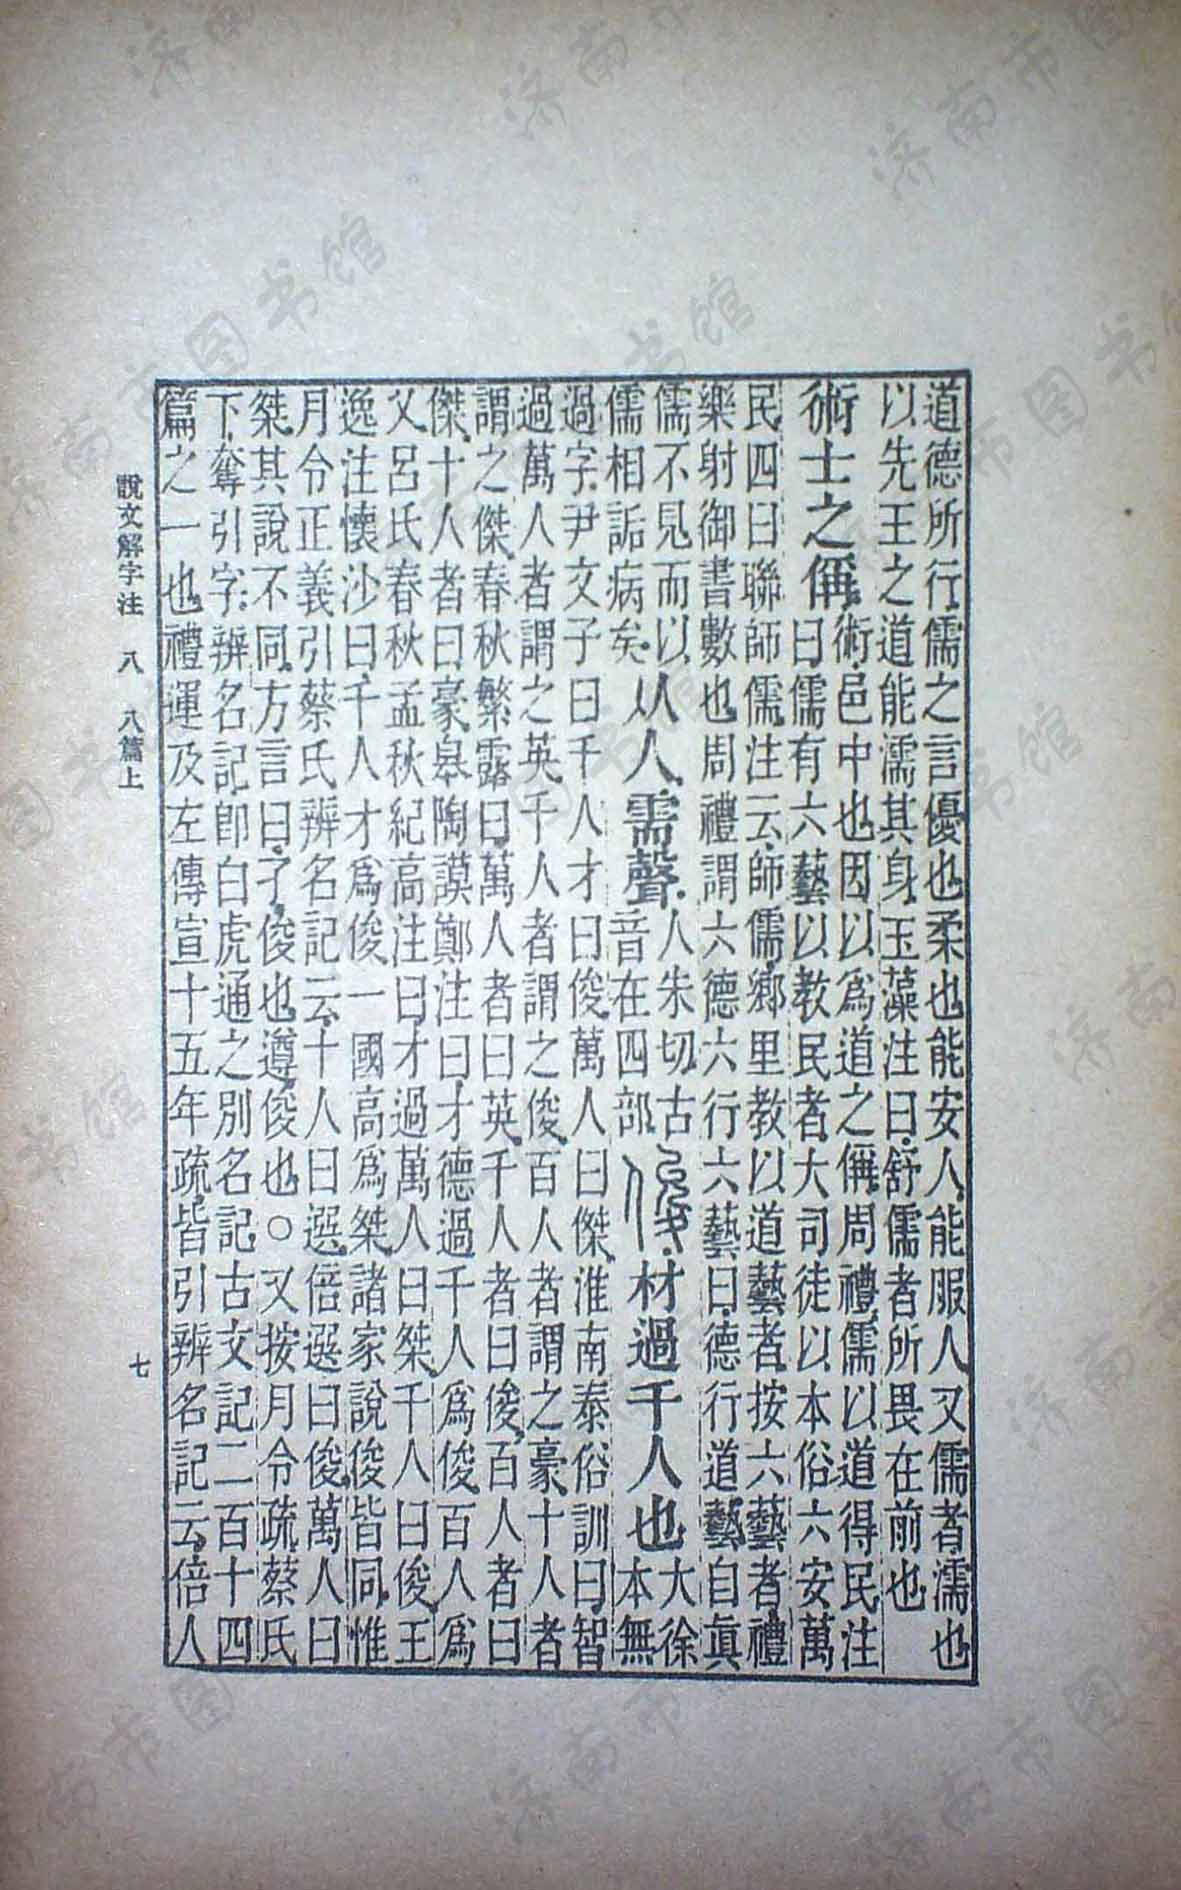 道德所行儒之言優也柔也能安人能服人又儒者濡也
以先王之道能濡其身玉藻注曰舒儒者所畏在前也
術士之偁術邑中也因以爲道之偁周禮儒以道得民注
曰儒有六藝以教民者大司徒以本俗六安萬
民四曰聯師儒注云師儒鄉里教以道藝者按六藝者禮
樂射御書數也周禮謂六德六行六藝曰德行道藝自眞
儒不見而以
儒相詬病矣
从人需聲
人朱切古
音在四部
材過千人也
大徐
本無
過字尹文子曰千人才曰俊萬人曰傑淮南泰俗訓曰智
過萬人者謂之英千人者謂之俊百人者謂之豪十人者
謂之傑春秋繁露曰萬人者曰英千人者曰俊百人者曰
傑十人者曰豪皋陶謨鄭注曰才德過千人爲俊百人爲
乂呂氏春秋孟秋紀高注曰才過萬人曰桀千人曰俊王
逸注懷沙曰千人才爲俊一國高爲桀諸家說俊皆同惟
月令正義引蔡氏辨名記云十人曰選倍選曰俊萬人曰
桀其說不同方言曰孑俊也遵俊也○又按月令疏蔡氏
下奪引字辨名記卽白虎通之別名記古文記二百十四
篇之一也禮運及左傳宣十五年疏皆引辨名記云倍人
說文解字注 八 八篇上
七
济南市图书馆